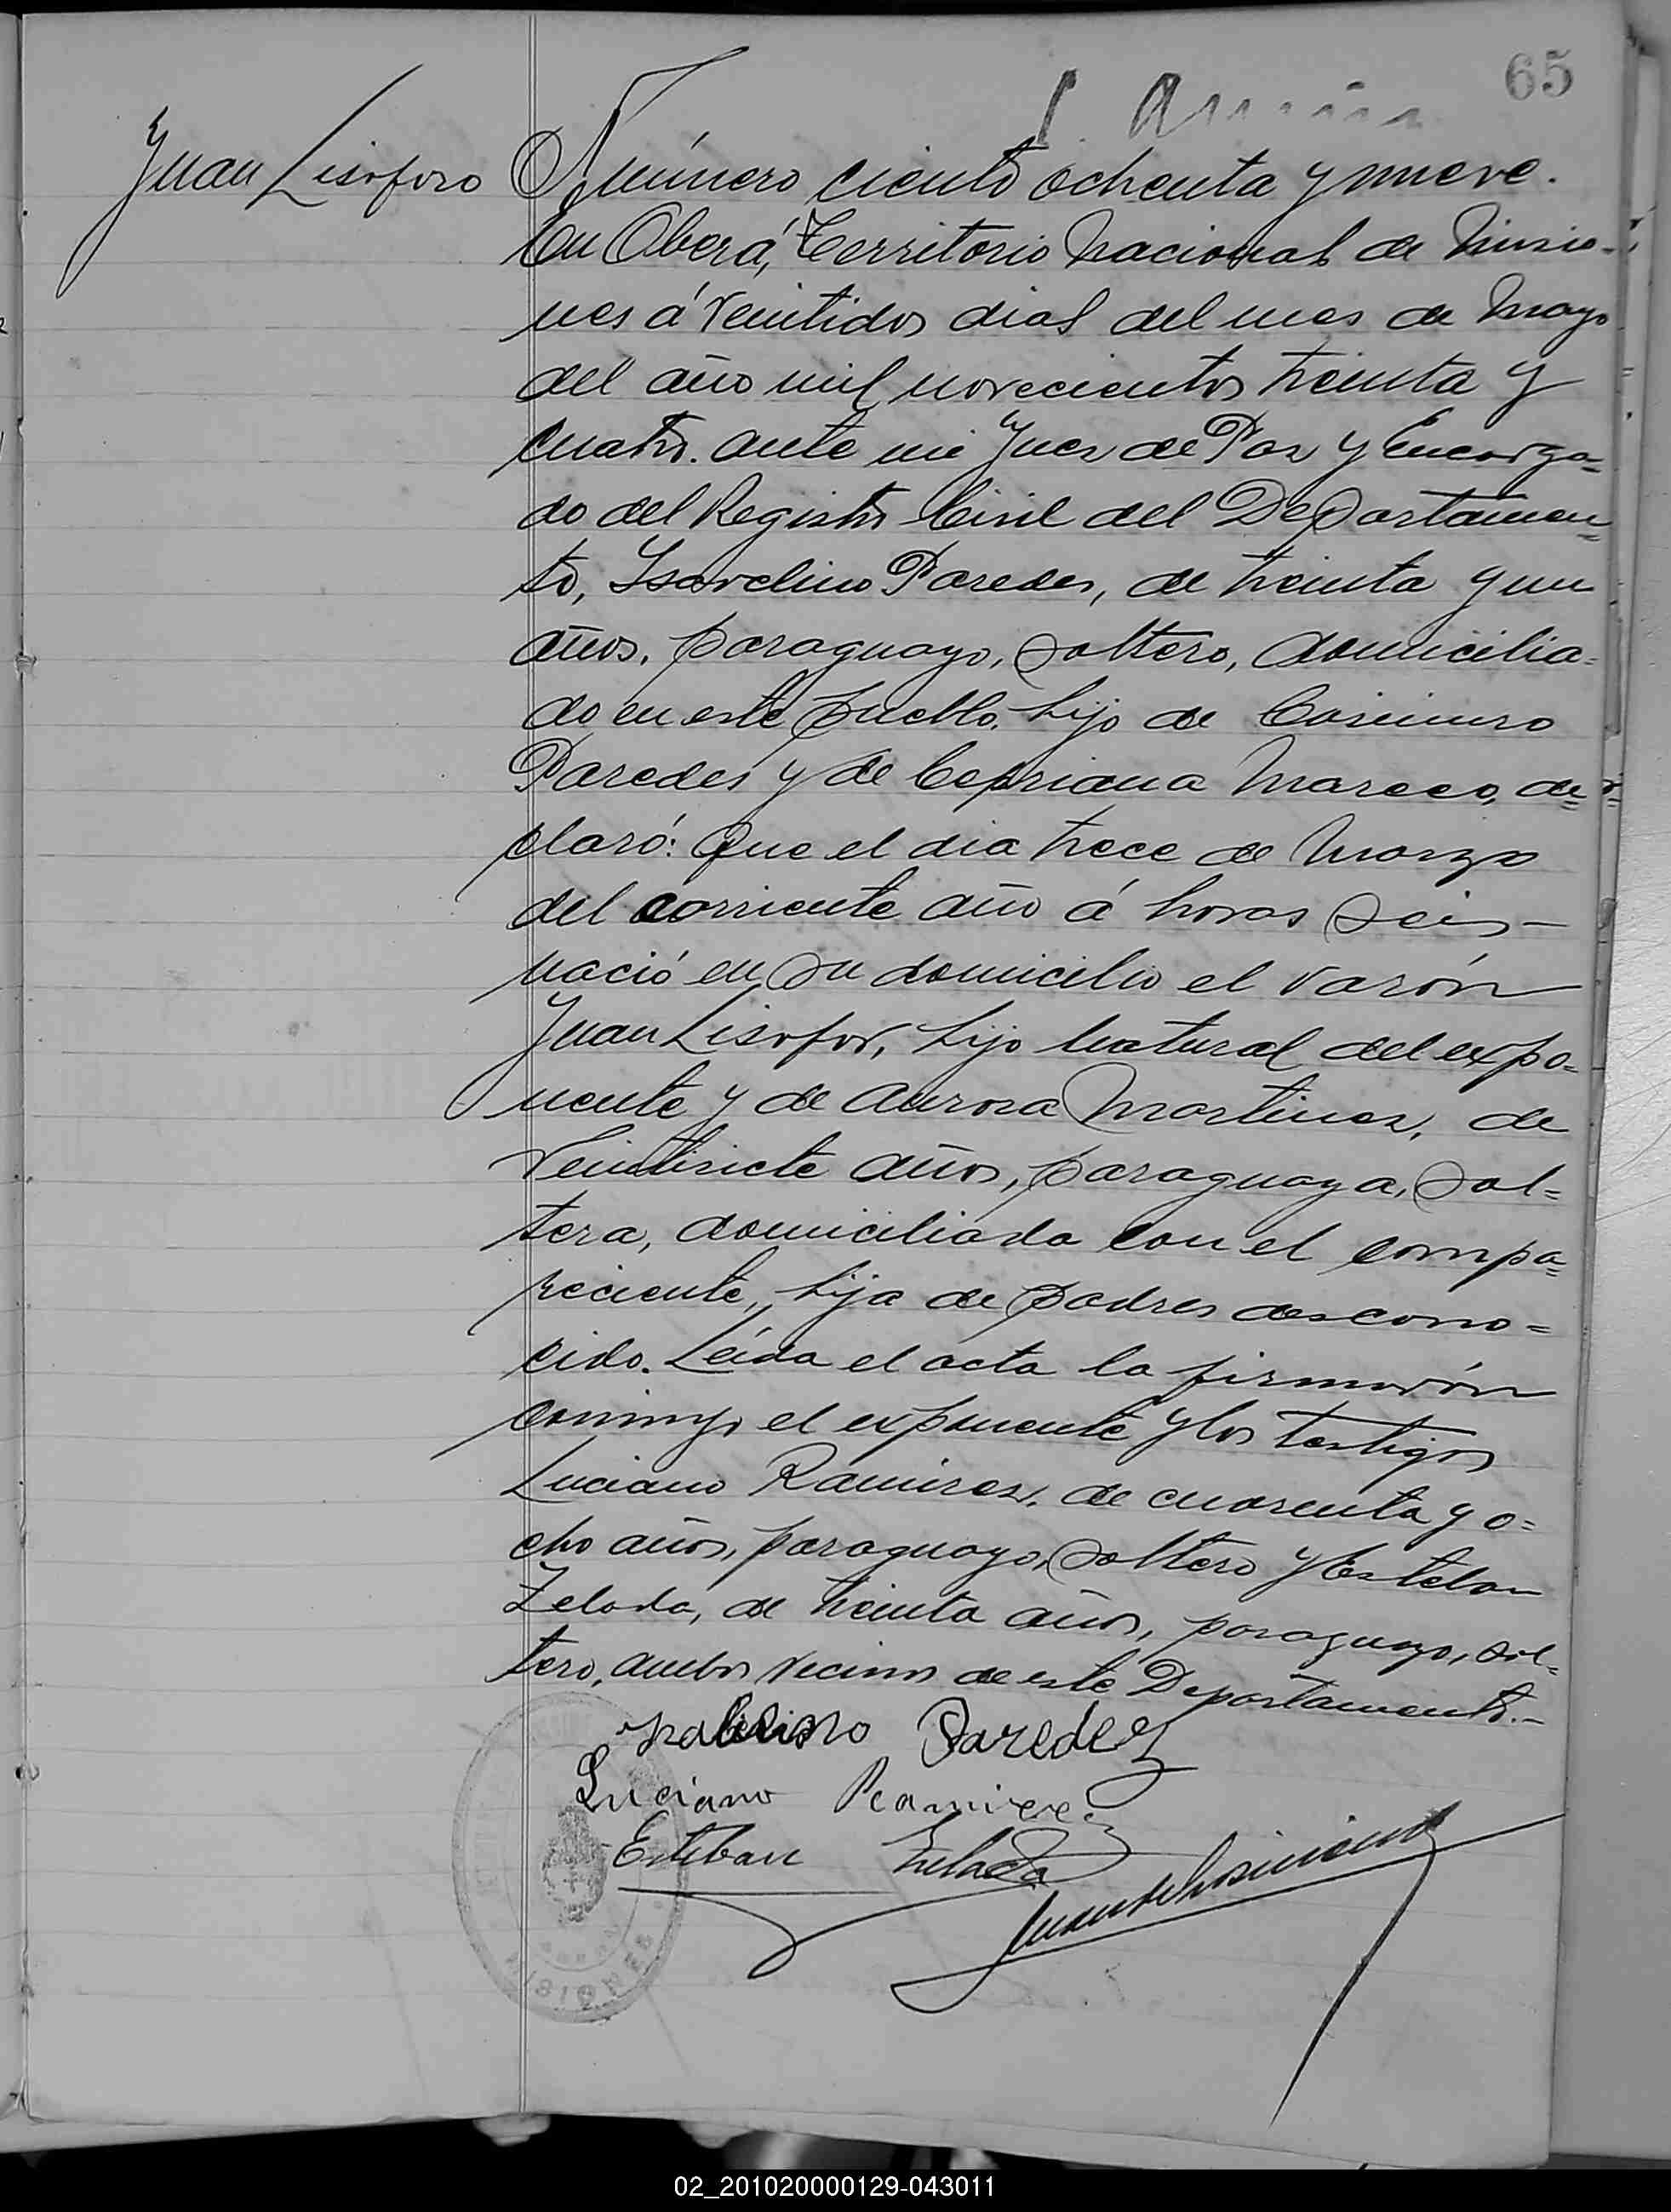 65
Juan Lisoforo
Número ciento ochenta y nueve.
En Oberá, Territorio Nacional de Misio-
nes á veintidos dias del mes de Mayo
del año mil novecientos treinta y
cuatro. ante mi Juez de Paz y Encarga=
do del Registro Civil del Departamen=
to, Isavelino Paredes, de treinta y un
años, paraguayo, soltero, domicilia=
do en este pueblo, hijo de Casimiro
Paredes y de Cepriana Mareco, de=
claró: Que el dia trece de Marzo
del corriente año á horas seis
nació en su domicilio el varón
Juan Lisofor, hijo natural del expo=
nente y de Aurora Martinez, de
veintisiete años, paraguaya, sol=
tera, domiciliada con el compa=
reciente, hija de padres descono=
cido. Leída el acta la firmarón
conmigo el exponente y los testigos
Luciano Ramirez, de cuarenta y o=
cho años, paraguayo, soltero y Esteban
Zelada, de treinta años, paraguayo, sol=
tero, ambos vecinos de este Departamento.-
Paredez
Luciano Ramirez
Esteban Zelada
MISIONES
02_201020000129-043011